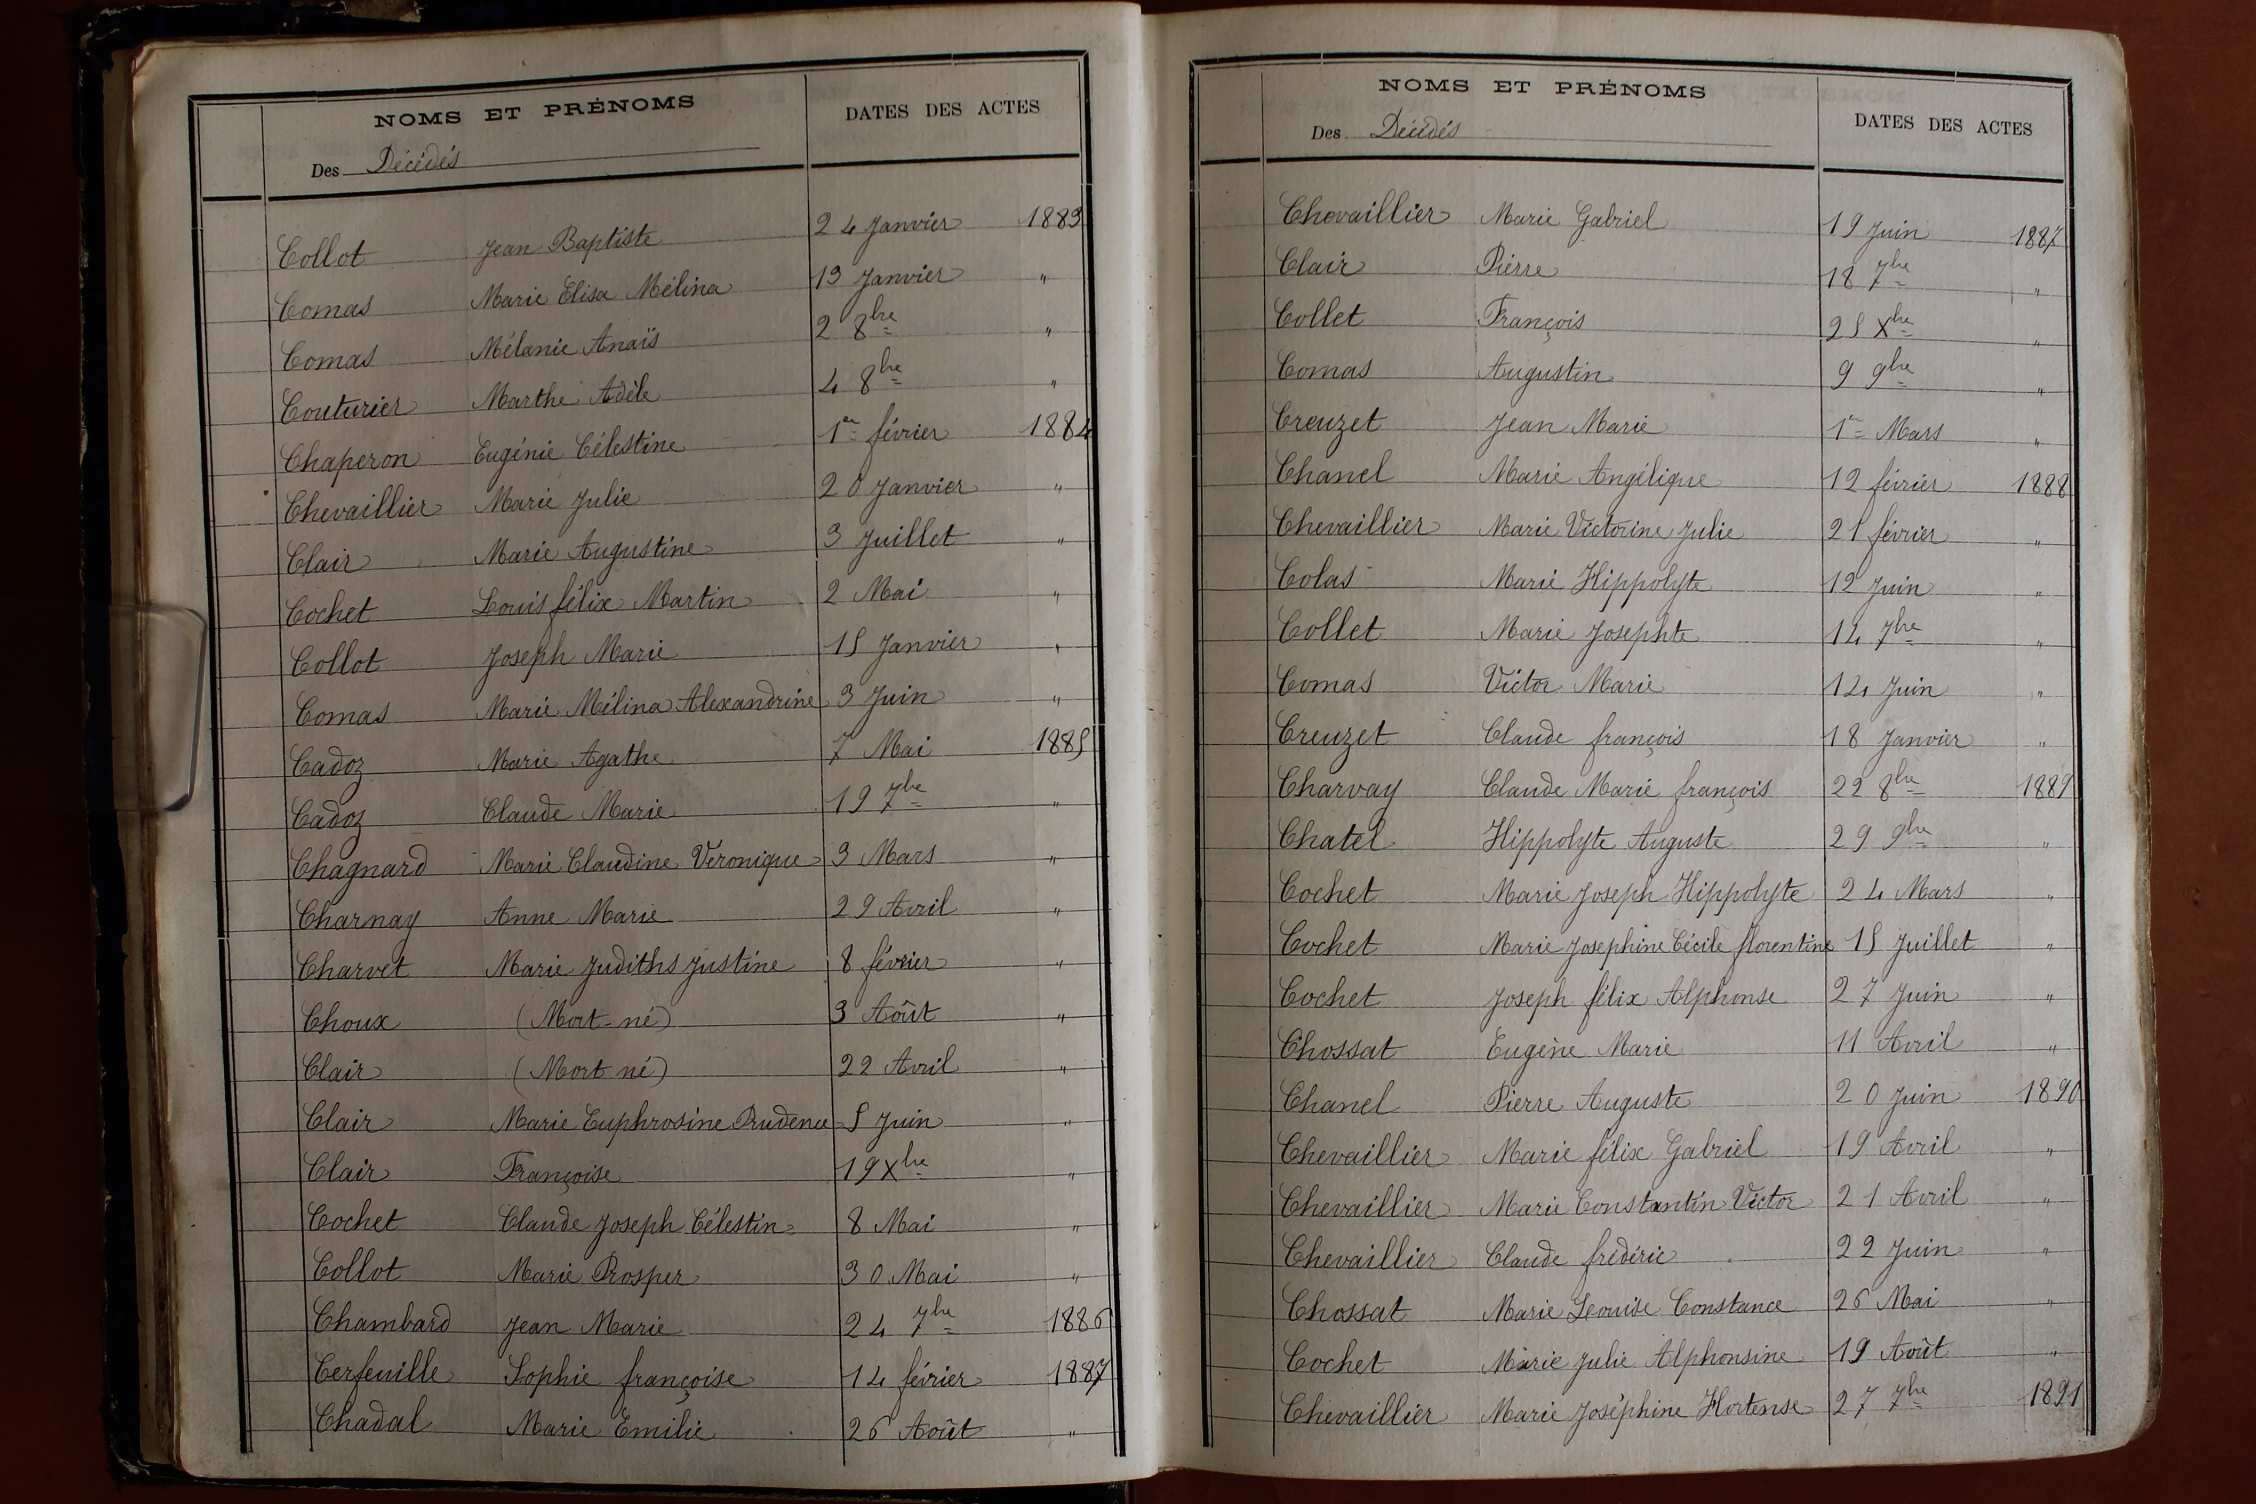 NOMS ET PRÉNOMS
DATES DES ACTES
Des Décédés
Collot Jean Baptiste 24 Janvier 1883
Comas Marie Elisa Mélina 13 Janvier "
Comas Mélanie Anaïs 2 8bre "
Couturier Marthe Adèle 4 8bre "
Chaperon Eugénie Célestine 1er février 1884
Chevaillier Marie Julie 20 Janvier "
Clair Marie Augustine 3 Juillet "
Cochet Louis félix Martin 2 Mai "
Collot Joseph Marie 15 Janvier "
Comas Marie Mélina Alexandrine 3 Juin "
Cadoz Marie Agathe 7 Mai 1885
Cadoz Claude Marie 19 7bre "
Chagnard Marie Claudine Veronique 3 Mars "
Charnay Anne Marie 29 Avril "
Charvet Marie Judiths Justine 8 février "
Choux (Mort-né) 3 Août "
Clair (Mort né) 22 Avril "
Clair Marie Euphrosine Prudence 5 Juin "
Clair Françoise 19 Xbre "
Cochet Claude Joseph Célestin 8 Mai "
Collot Marie Prosper 30 Mai "
Chambard Jean Marie 24 7bre 1886
Cerfeuille Sophie françoise 14 février 1887
Chadal Marie Emilie 26 Août "
NOMS ET PRÉNOMS
DATES DES ACTES
Des Décédés
Chevaillier Marie Gabriel 19 Juin 1887
Clair Pierre 18 7bre "
Collet François 25 Xbre "
Comas Augustin 9 9bre "
Creuzet Jean Marie 1er Mars "
Chanel Marie Angélique 12 février 1888
Chevaillier Marie Victorine Julie 21 février "
Colas Marie Hippolyte 12 Juin "
Collet Marie Josephte 14 7bre "
Comas Victor Marie 14 Juin "
Creuzet Claude françois 18 Janvier "
Charvay Claude Marie françois 22 8bre 1889
Chatel Hippolyte Auguste 29 9bre "
Cochet Marie Joseph Hippolyte 24 Mars "
Cochet Marie Josephine Cécile florentine 15 Juillet "
Cochet Joseph félix Alphonse 27 Juin "
Chossat Eugène Marie 11 Avril "
Chanel Pierre Auguste 20 Juin 1890
Chevaillier Marie félix Gabriel 19 Avril "
Chevaillier Marie Constantin Victor 21 Avril "
Chevaillier Claude fréderic 22 Juin "
Chossat Marie Leouise Constance 26 Mai "
Cochet Marie Julie Alphonsine 19 Août "
Chevaillier Marie Joséphine Hortense 27 7bre 1891